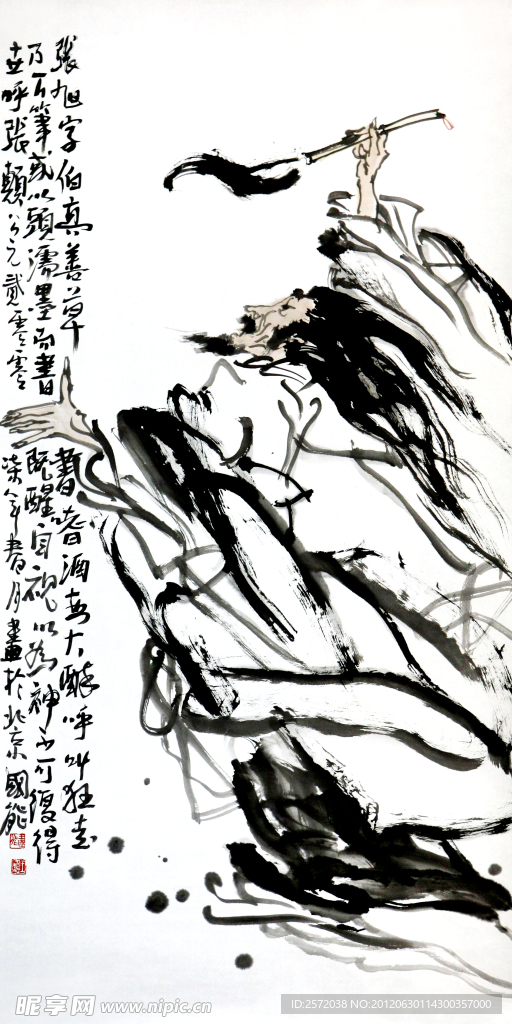 张旭字伯真善草书嗜酒每大醉呼叫狂走
乃下笔或以头濡墨而书既醒自视以为神不可復得
世呼张颠公元贰零零柒年春月画於北京國能
昵享网 www.nipic.cn
ID:2572038 NO:20120630114300357000